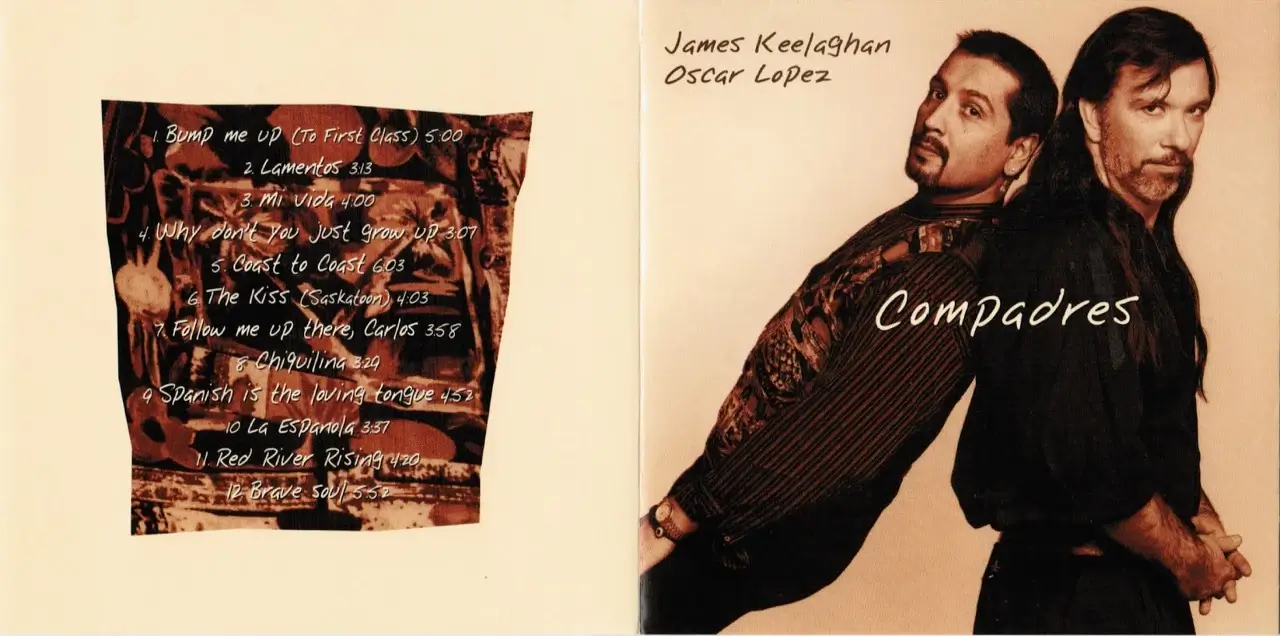 1. Bump me up (To First Class) 5:00
2. Lamentos 3:13
3. Mi vida 4:00
4. Why don't you just grow up 3:07
5. Coast to Coast 6:03
6. The Kiss (Saskatoon) 4:03
7. Follow me up there, Carlos 3:58
8 Chiquilina 3:29
9 Spanish is the loving tongue 4:52
10 La Espanola 3:37
11. Red River Rising 4:20
12. Brave soul 5:52
James Keelaghan
Oscar Lopez
Compadres